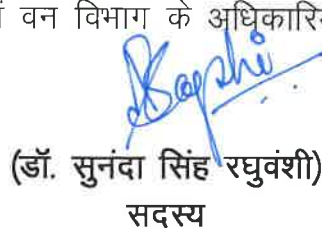 वन विभाग के अधिकारि
(डॉ. सुनंदा सिंह रघुवंशी)
सदस्य